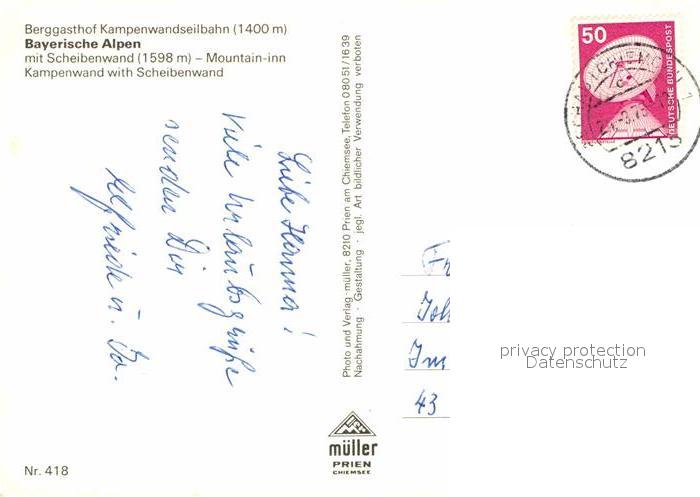 Berggasthof Kampenwandseilbahn (1400 m)
Bayerische Alpen
mit Scheibenwand (1598 m) – Mountain-inn
Kampenwand with Scheibenwand
Liebe Hanna!
Viele Urlaubsgrüße
senden Dir
Elfriede u.
Photo und Verlag - müller, 8210 Prien am Chiemsee, Telefon 08051/1639
Nachahmung · Gestaltung · jegl. Art bildlicher Verwendung verboten
50
DEUTSCHE BUNDESPOST
8213
Fr
Joh
Im
43
privacy protection
Datenschutz
müller
PRIEN
CHIEMSEE
Nr. 418